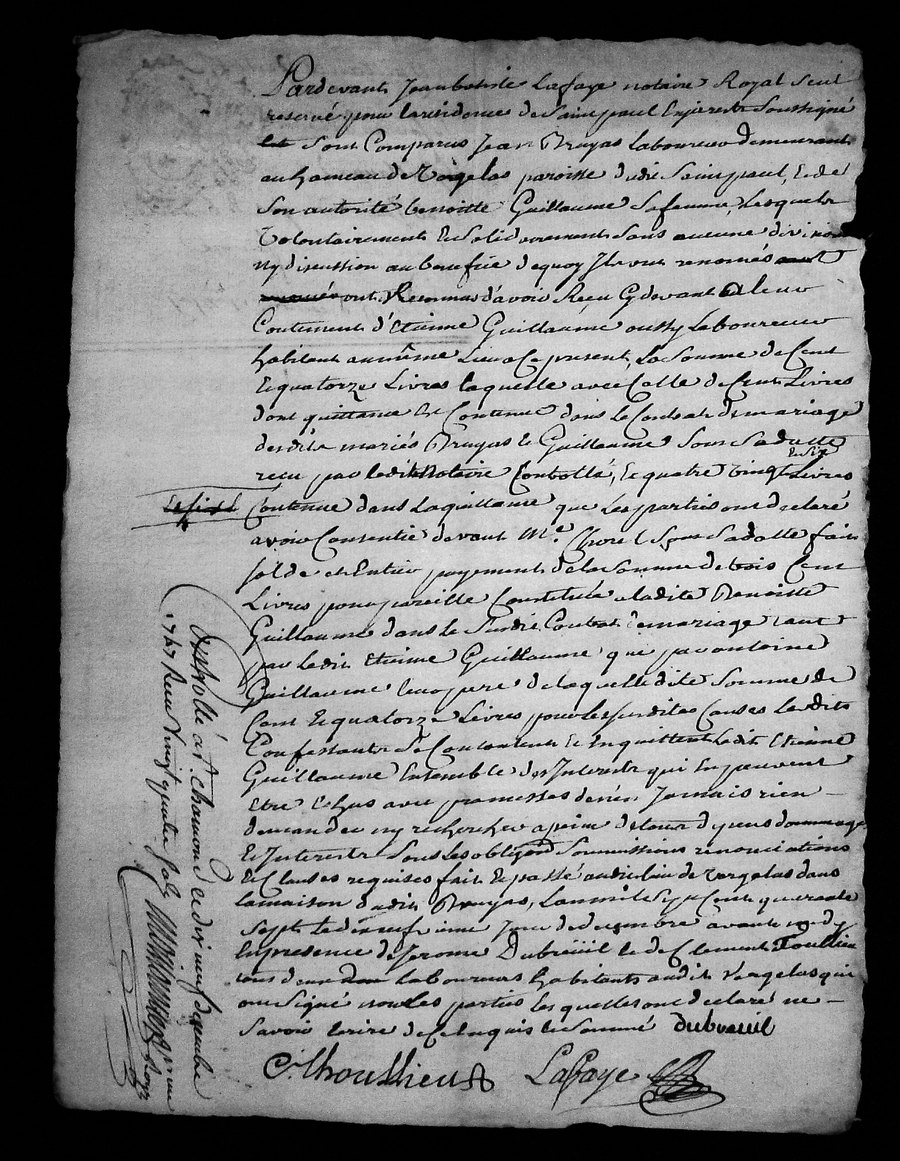 Pardevant Jean batiste Lafaye notaire Royal Seul
reservé pour la residence de Saint paul Enjarest Soussigné
Sont Comparus Jean Bruyas laboureur demeurant
au hameau de Vergelas paroisse dudit Saint paul, Et de
Son autorité benoitte Guillaume Sa femme, Lesquels
volontairement Et Solidairement Sans aucune division
ny discution au benefice dequoy Ils ont renoncés
ont Reconnus d'avoir Reçu Cy devant a leur
Contement d'Etienne Guillaume aussy Laboureur
habitant au même Lieu a Ce present, La Somme de Cent
Et quatorze Livres laquelle avec Celle de Cent Livres
dont quittance Est Contenue dans le Contrat de mariage
desdits mariés Bruyas Et Guillaume Sous Sa datte
reçu par ledit Notaire Controllé, Et quatre vingt Et Six Livres
Contenue dans La quittance que Les parties ont declaré
avoir Consentie devant Me. Sous Sa datte fait
Solde Et Entier payement de la Somme de trois Cent
Livres pour pareille Constituée a ladite Benoitte
Guillaume dans le Susdit Contrat de mariage tant
par ledit Etienne Guillaume que par antoine
Guillaume leur pere de laquelle dite Somme de
Cent Et quatorze Livres pour les susdites Causes lesdits
Confessants Se Contentent Et En quittent ledit Etienne
Guillaume Ensemble des Interets qui En peuvent
Etre Echus avec promesses de n'en Jamais rien
demander ny rechercher a peine de tous depens dommages
Et Interests Sous Les obligons Soumissions renonciations
Et Clauses requises fait Et passé audit lieu de Vergelas dans
la maison dudit Bruyas, L'an mil Sept Cent quarante
Sept le dix neufvieme Jour de decembre avant midy
En presence de Jerome Dubreüil Et de Clement Toullieu
tous deux laboureurs habitants audit Vergelas qui
ont Signé non Les parties lesquelles ont declaré ne
Savoir Ecrire de Ce Enquis Et Sommé dubreuil
C. thoullieu Lafaye
Controllé a St. chamond Ce dix neuf decembre
1747 Reçu vingt quatre Sols